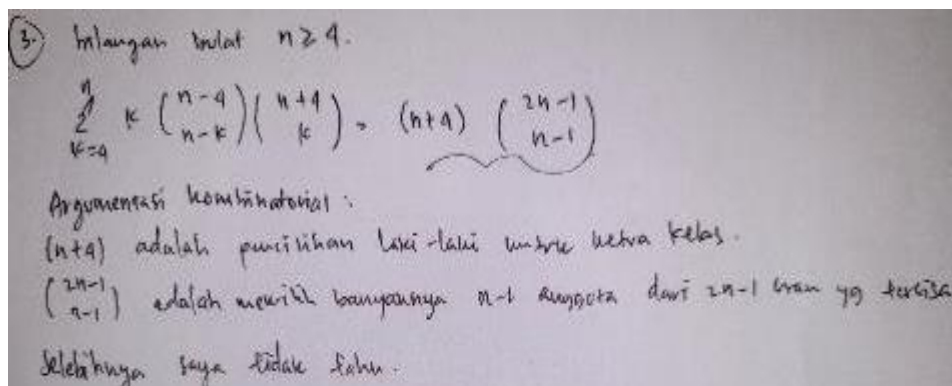 3. bilangan bulat n ≥ 4.
n ∑ k=4 k (n-4 n-k)(n+4 k) = (n+4) (2n-1 n-1)
Argumentasi kombinatorial :
(n+4) adalah pemilihan laki-laki untuk ketua kelas.
(2n-1 n-1) adalah memilih banyaknya n-1 anggota dari 2n-1 orang yg tersisa
Selebihnya saya tidak tahu.